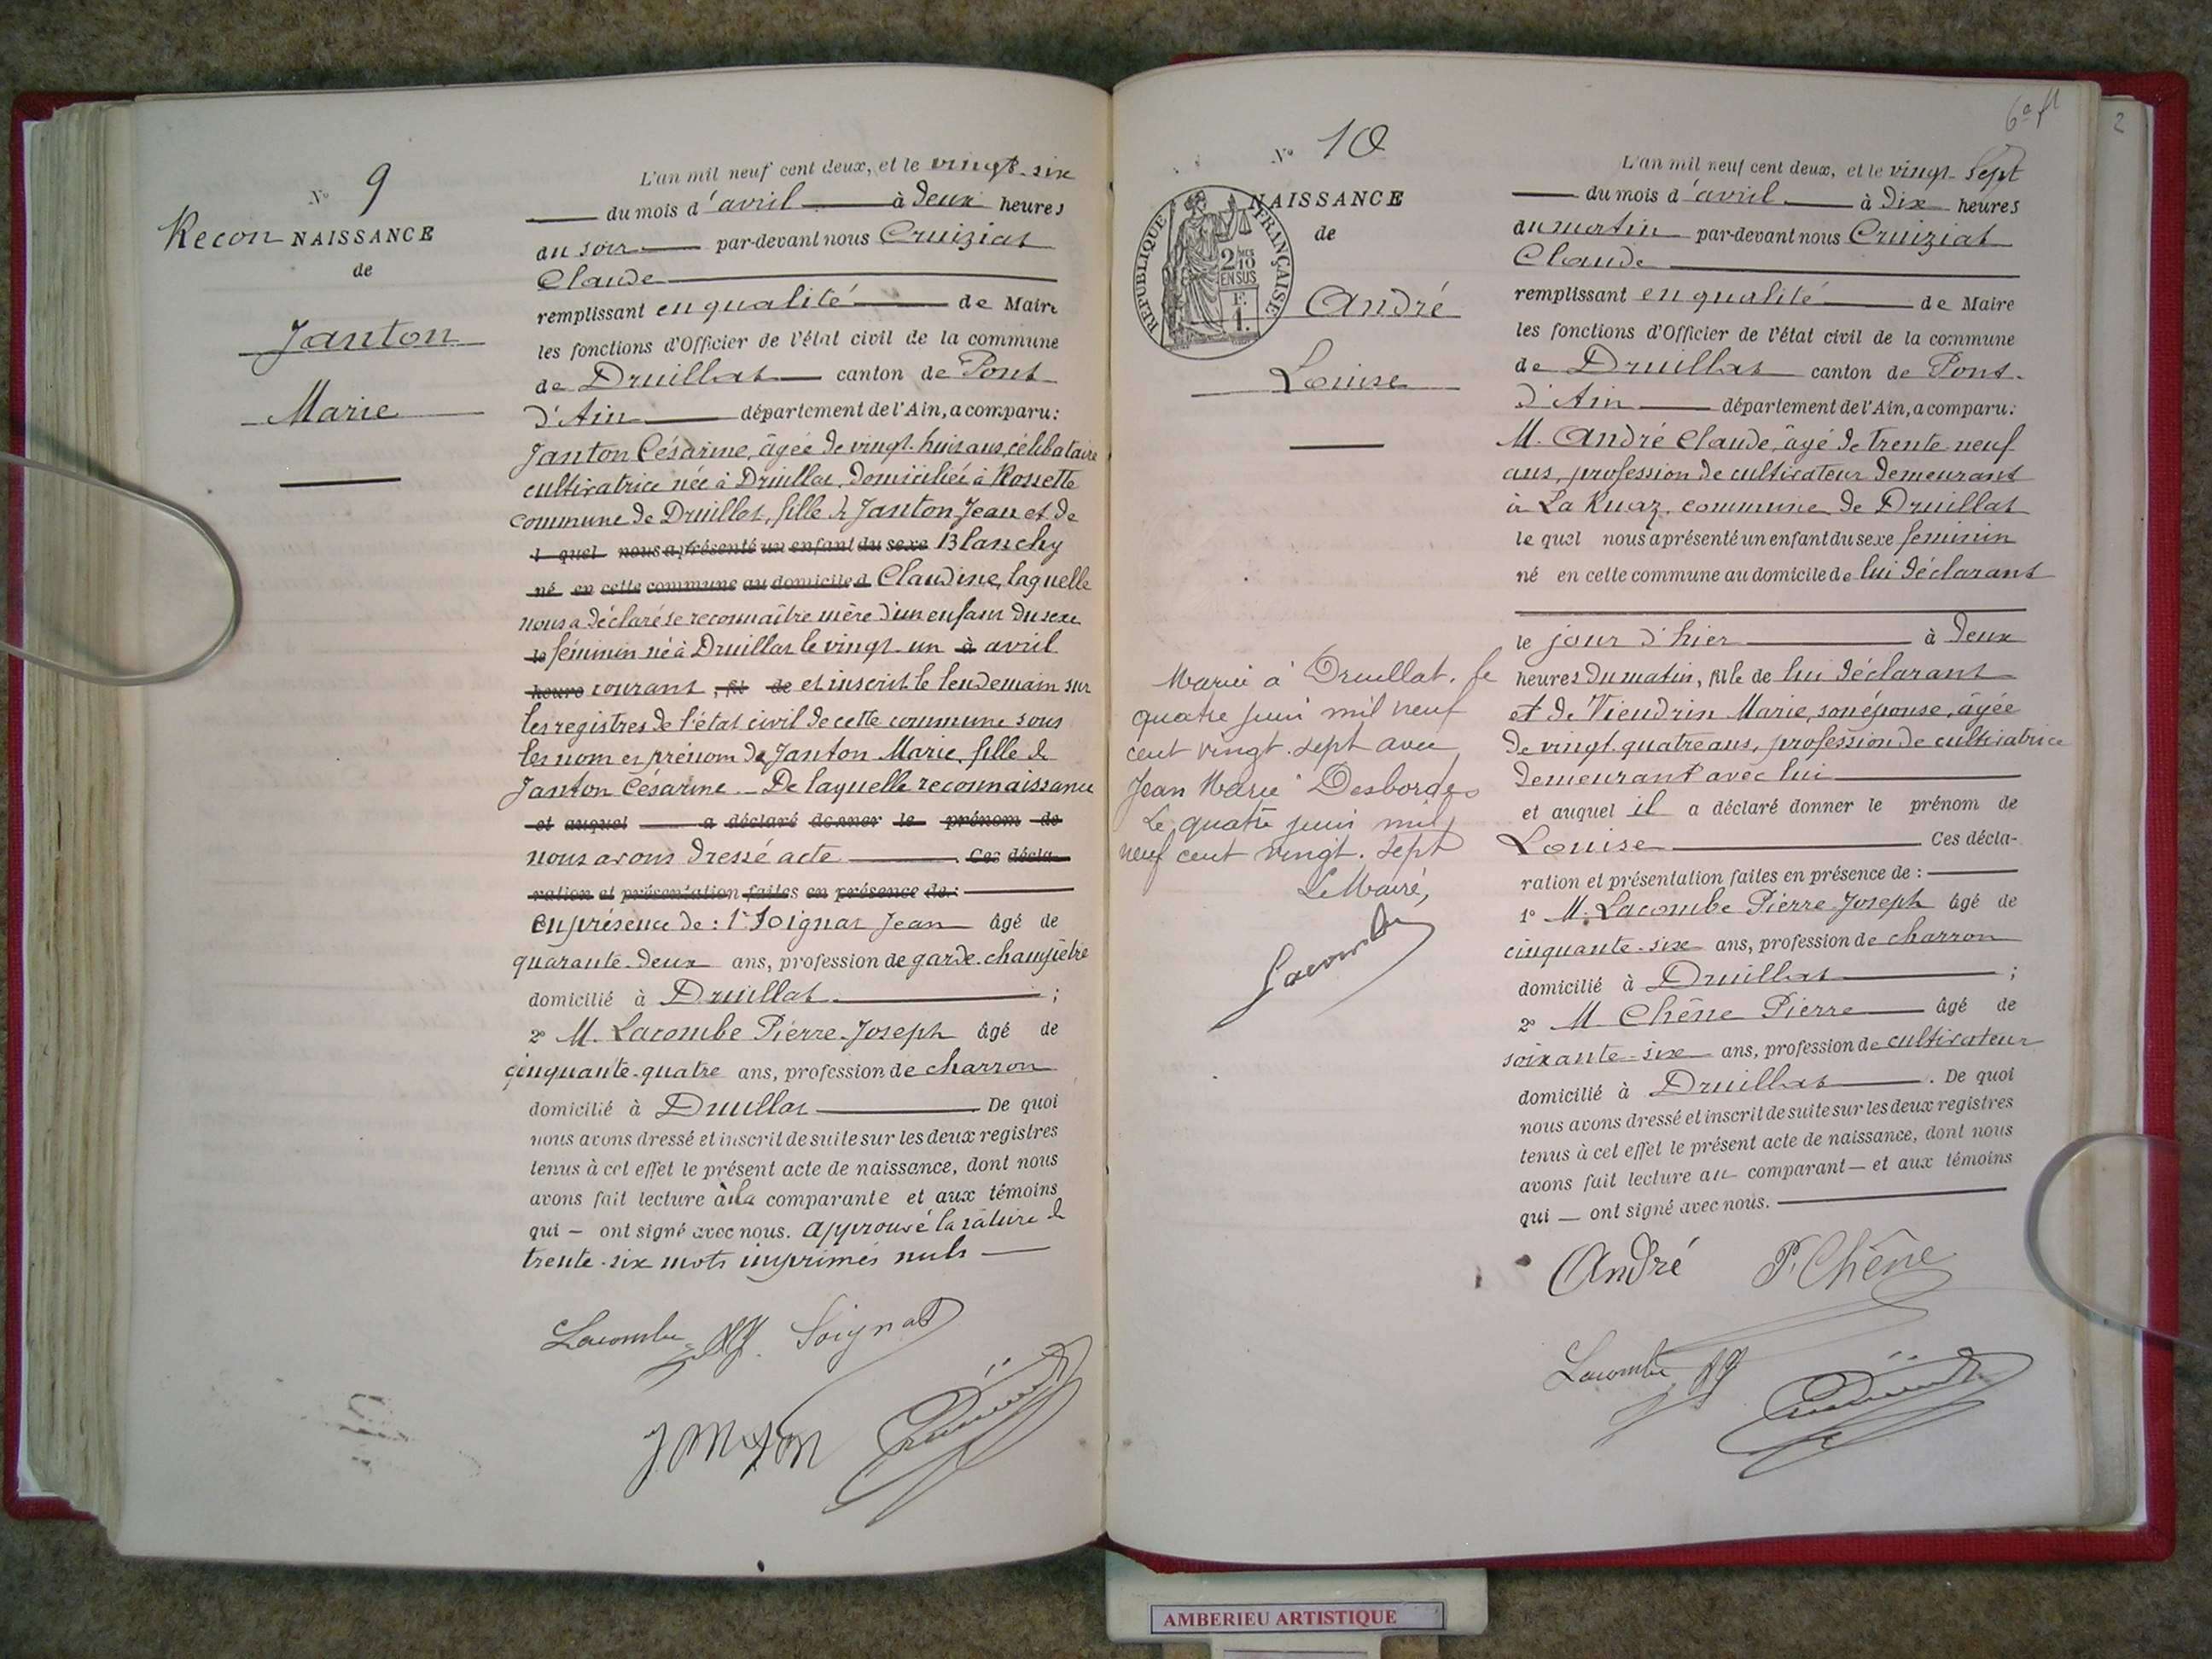 N° 9
Recon NAISSANCE
de
Janton
Marie
L'an mil neuf cent deux, et le vingt-six
du mois d'avril à deux heures
du soir par-devant nous Cruiziat
Claude
remplissant en qualité de Maire
les fonctions d'Officier de l'état civil de la commune
de Druillat canton de Pont
d'Ain département de l'Ain, a comparu:
Janton Césarine, âgée de vingt-huit ans, célibataire
cultivatrice née à Druillat, domiciliée à Rossette
commune de Druillat, fille de Janton Jean et de
l quel nous a présenté un enfant du sexe Blanchy
né en cette commune au domicile d Claudine, laquelle
nous a déclaré se reconnaître mère d'un enfant du sexe
le féminin né à Druillat le vingt-un à avril
heure courant, fil de et inscrit le lendemain sur
les registres de l'état civil de cette commune sous
les nom et prénom de Janton Marie, fille de
Janton Césarine. – De laquelle reconnaissance
et auquel a déclaré donner le prénom de
nous avons dressé acte . Ces décla-
ration et présentation faites en présence de :
en présence de : 1° Soignat Jean âgé de
quarante-deux ans, profession de garde-champêtre
domicilié à Druillat ;
2° M. Lacombe Pierre-Joseph âgé de
cinquante-quatre ans, profession de charron
domicilié à Druillat . De quoi
nous avons dressé et inscrit de suite sur les deux registres
tenus à cet effet le présent acte de naissance, dont nous
avons fait lecture à la comparante et aux témoins
qui – ont signé avec nous. Approuvé la rature de
trente-six mots imprimés nuls
Lacombe Soignat
Janton
6e ft
2
N° 10
NAISSANCE
de
REPUBLIQUE FRANÇAISE
2 MES
10
EN SUS
F.
1.
André
Louise
Marié à Druillat, le
quatre juin mil neuf
cent vingt-sept avec
Jean Marie Desbordes
Le quatre juin mil
neuf cent vingt-sept
Le Maire,
Lacombe
L'an mil neuf cent deux, et le vingt-sept
du mois d'avril à dix heures
du matin par-devant nous Cruiziat
Claude
remplissant en qualité de Maire
les fonctions d'Officier de l'état civil de la commune
de Druillat canton de Pont-
d'Ain département de l'Ain, a comparu:
M. André Claude, âgé de trente-neuf
ans, profession de cultivateur demeurant
à La Ruaz, commune de Druillat
le quel nous a présenté un enfant du sexe féminin
né en cette commune au domicile de lui déclarant
le jour d'hier à deux
heures du matin, fille de lui déclarant
et de Vieudrin Marie, son épouse, âgée
de vingt-quatre ans, profession de cultivatrice
demeurant avec lui
et auquel il a déclaré donner le prénom de
Louise Ces décla-
ration et présentation faites en présence de :
1° M. Lacombe Pierre-Joseph âgé de
cinquante-six ans, profession de charron
domicilié à Druillat ;
2° M Chêne Pierre âgé de
soixante-six ans, profession de cultivateur
domicilié à Druillat . De quoi
nous avons dressé et inscrit de suite sur les deux registres
tenus à cet effet le présent acte de naissance, dont nous
avons fait lecture au comparant – et aux témoins
qui – ont signé avec nous.
André P. Chêne
Lacombe
AMBERIEU ARTISTIQUE